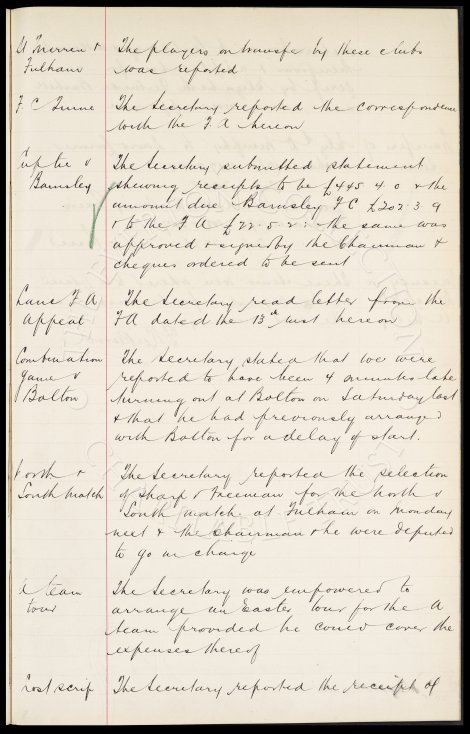 St Mirren & The players on transfer by these clubs
Fulham was reported
F C Turine The Secretary reported the correspondence
with the F A hereon
Cup tie v The Secretary submitted statement
Barnsley showing receipts to be £445 4 0 & the
amount due Barnsley F C £202 3 9
& to the F A £22 . 5 . 2 : the same was
approved & signed by the Chairman &
cheques ordered to be sent
Lancs F A The Secretary read letter from the
Appeal FA dated the 13th inst hereon
Combination The Secretary stated that we were
game v reported to have been 4 minutes late
Bolton turning out at Bolton on Saturday last
& that he had previously arranged
with Bolton for a delay of start.
North & The Secretary reported the selection
South Match of Sharp & Freeman for the North v
South match at Fulham on Monday
next & the Chairman & he were deputed
to go in charge
A team The Secretary was empowered to
tour arrange an Easter tour for the A
team provided he could cover the
expenses thereof
Lost scrip The Secretary reported the receipt of